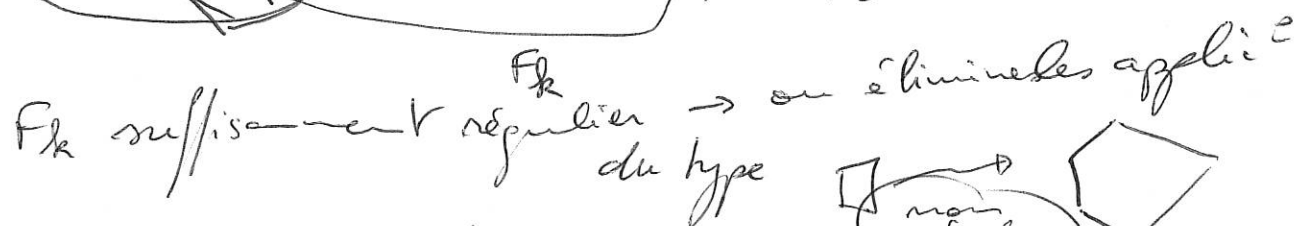 Fk
Fk suffisamment régulier → on élimine les applic°
du type
non